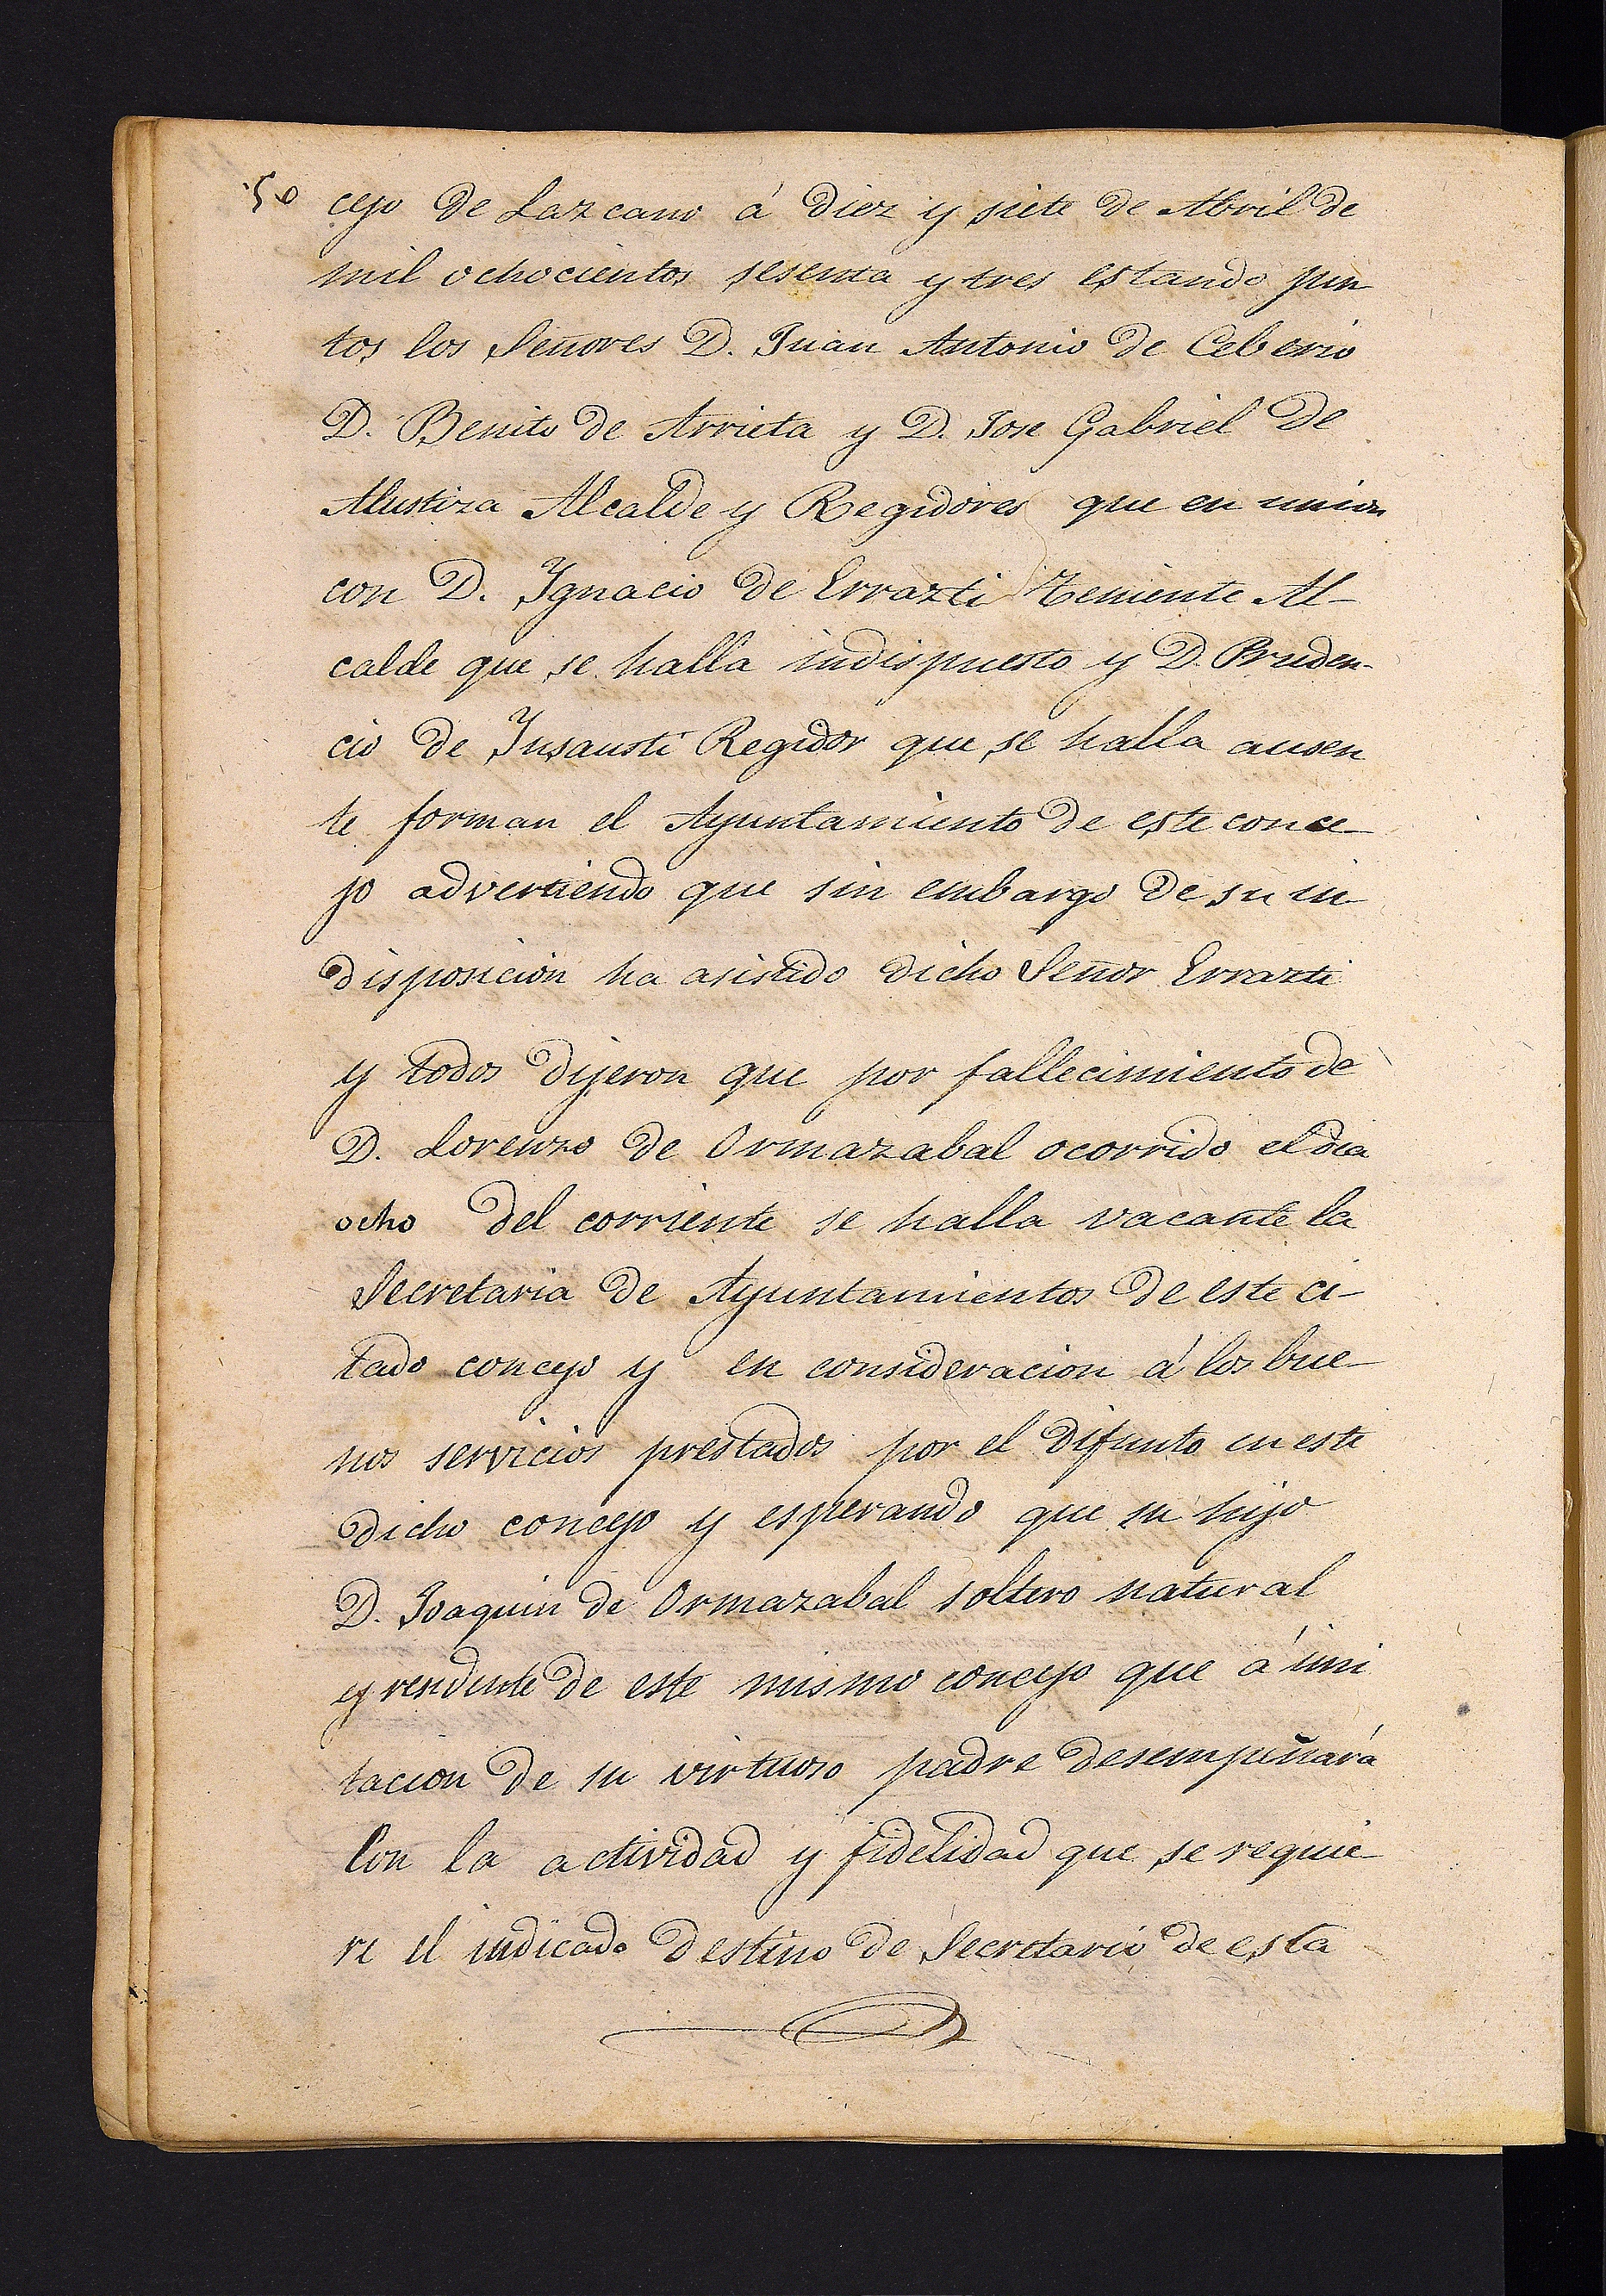 50 cejo de Lazcano á diez y siete de Abril de
mil ochocientos sesenta y tres estando jun
tos los Señores D. Juan Antonio de Ceberio
D. Benito de Arrieta y D. Jose Gabriel de
Alustiza Alcalde y Regidores que en union
con D. Ygnacio de Errazti Teniente Al-
calde que se halla indispuesto y D. Pruden-
cio de Ynsausti Regidor que se halla ausen
te forman el Ayuntamiento de este conce-
jo advertiendo que sin embargo de su in-
disposicion ha asistido dicho Señor Errazti
y todos dijeron que por fallecimiento de
D. Lorenzo de Ormazabal ocorrido el dia
ocho del corriente se halla vacante la
Secretaria de Ayuntamientos de este ci-
tado concejo y en consideracion á los bue-
nos servicios prestados por el difunto en este
dicho concejo y esperando que su hijo
D. Joaquin de Ormazabal soltero natural
y residente de este mismo concejo que á imi
tacion de su virtuoso padre desempeñará
Con la actividad y fidelidad que se requie-
re el indicado destino de Secretario de esta